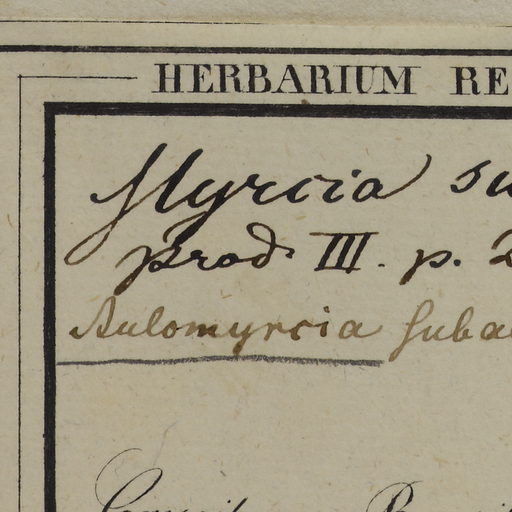 HERBARIUM RE
Myrcia su
prod. III. p. 2
Aulomyrcia suba